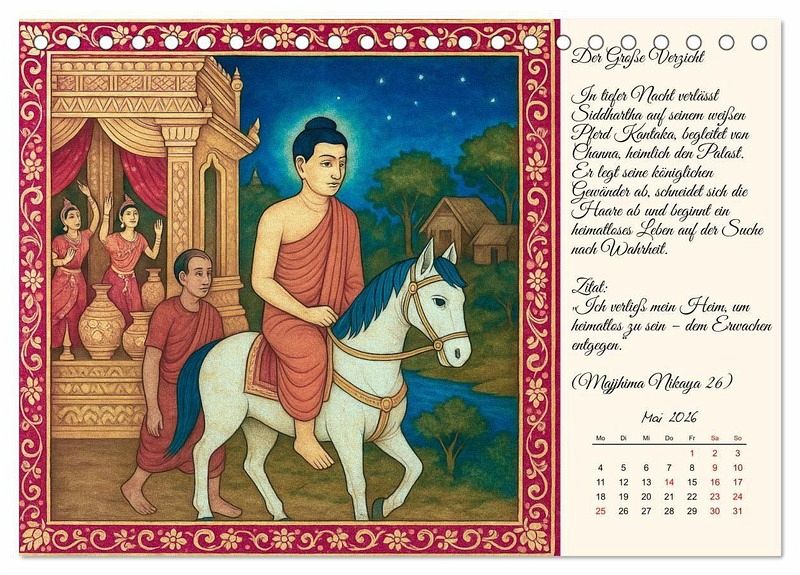 Der Große Verzicht
In tiefer Nacht verlässt
Siddhartha auf seinem weißen
Pferd Kantaka, begleitet von
Channa, heimlich den Palast.
Er legt seine königlichen
Gewänder ab, schneidet sich die
Haare ab und beginnt ein
heimatloses Leben auf der Suche
nach Wahrheit.
Zitat:
„Ich verließ mein Heim, um
heimatlos zu sein – dem Erwachen
entgegen.“
(Majjhima Nikaya 26)
Mai 2026
Mo Di Mi Do Fr Sa So
1 2 3
4 5 6 7 8 9 10
11 12 13 14 15 16 17
18 19 20 21 22 23 24
25 26 27 28 29 30 31